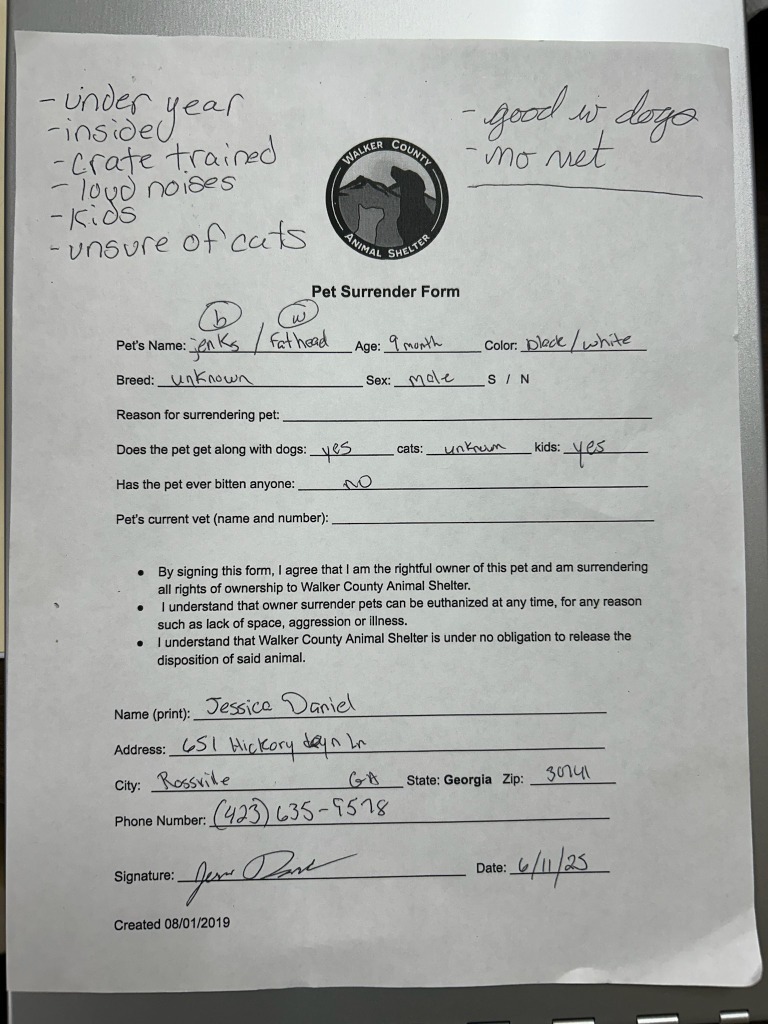 - under year
- inside
- crate trained
- loud noises
- Kids
- unsure of cats
- good w dogs
- no vet
WALKER COUNTY
ANIMAL SHELTER
Pet Surrender Form
b w
Pet's Name: jenks / Fathead Age: 9 month Color: black/white
Breed: unknown Sex: male S / N
Reason for surrendering pet:
Does the pet get along with dogs: yes cats: unknown kids: yes
Has the pet ever bitten anyone: NO
Pet's current vet (name and number):
• By signing this form, I agree that I am the rightful owner of this pet and am surrendering
all rights of ownership to Walker County Animal Shelter.
• I understand that owner surrender pets can be euthanized at any time, for any reason
such as lack of space, aggression or illness.
• I understand that Walker County Animal Shelter is under no obligation to release the
disposition of said animal.
Name (print): Jessica Daniel
Address: 651 Hickory Ln
City: Rossville GA State: Georgia Zip: 30741
Phone Number: (423) 635-9578
Signature:
Date: 6/11/25
Created 08/01/2019